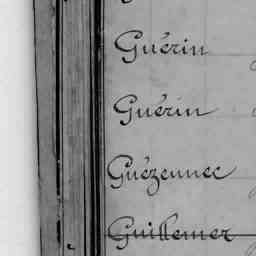 Guérin
Guérin
Guézennec
Guillemer